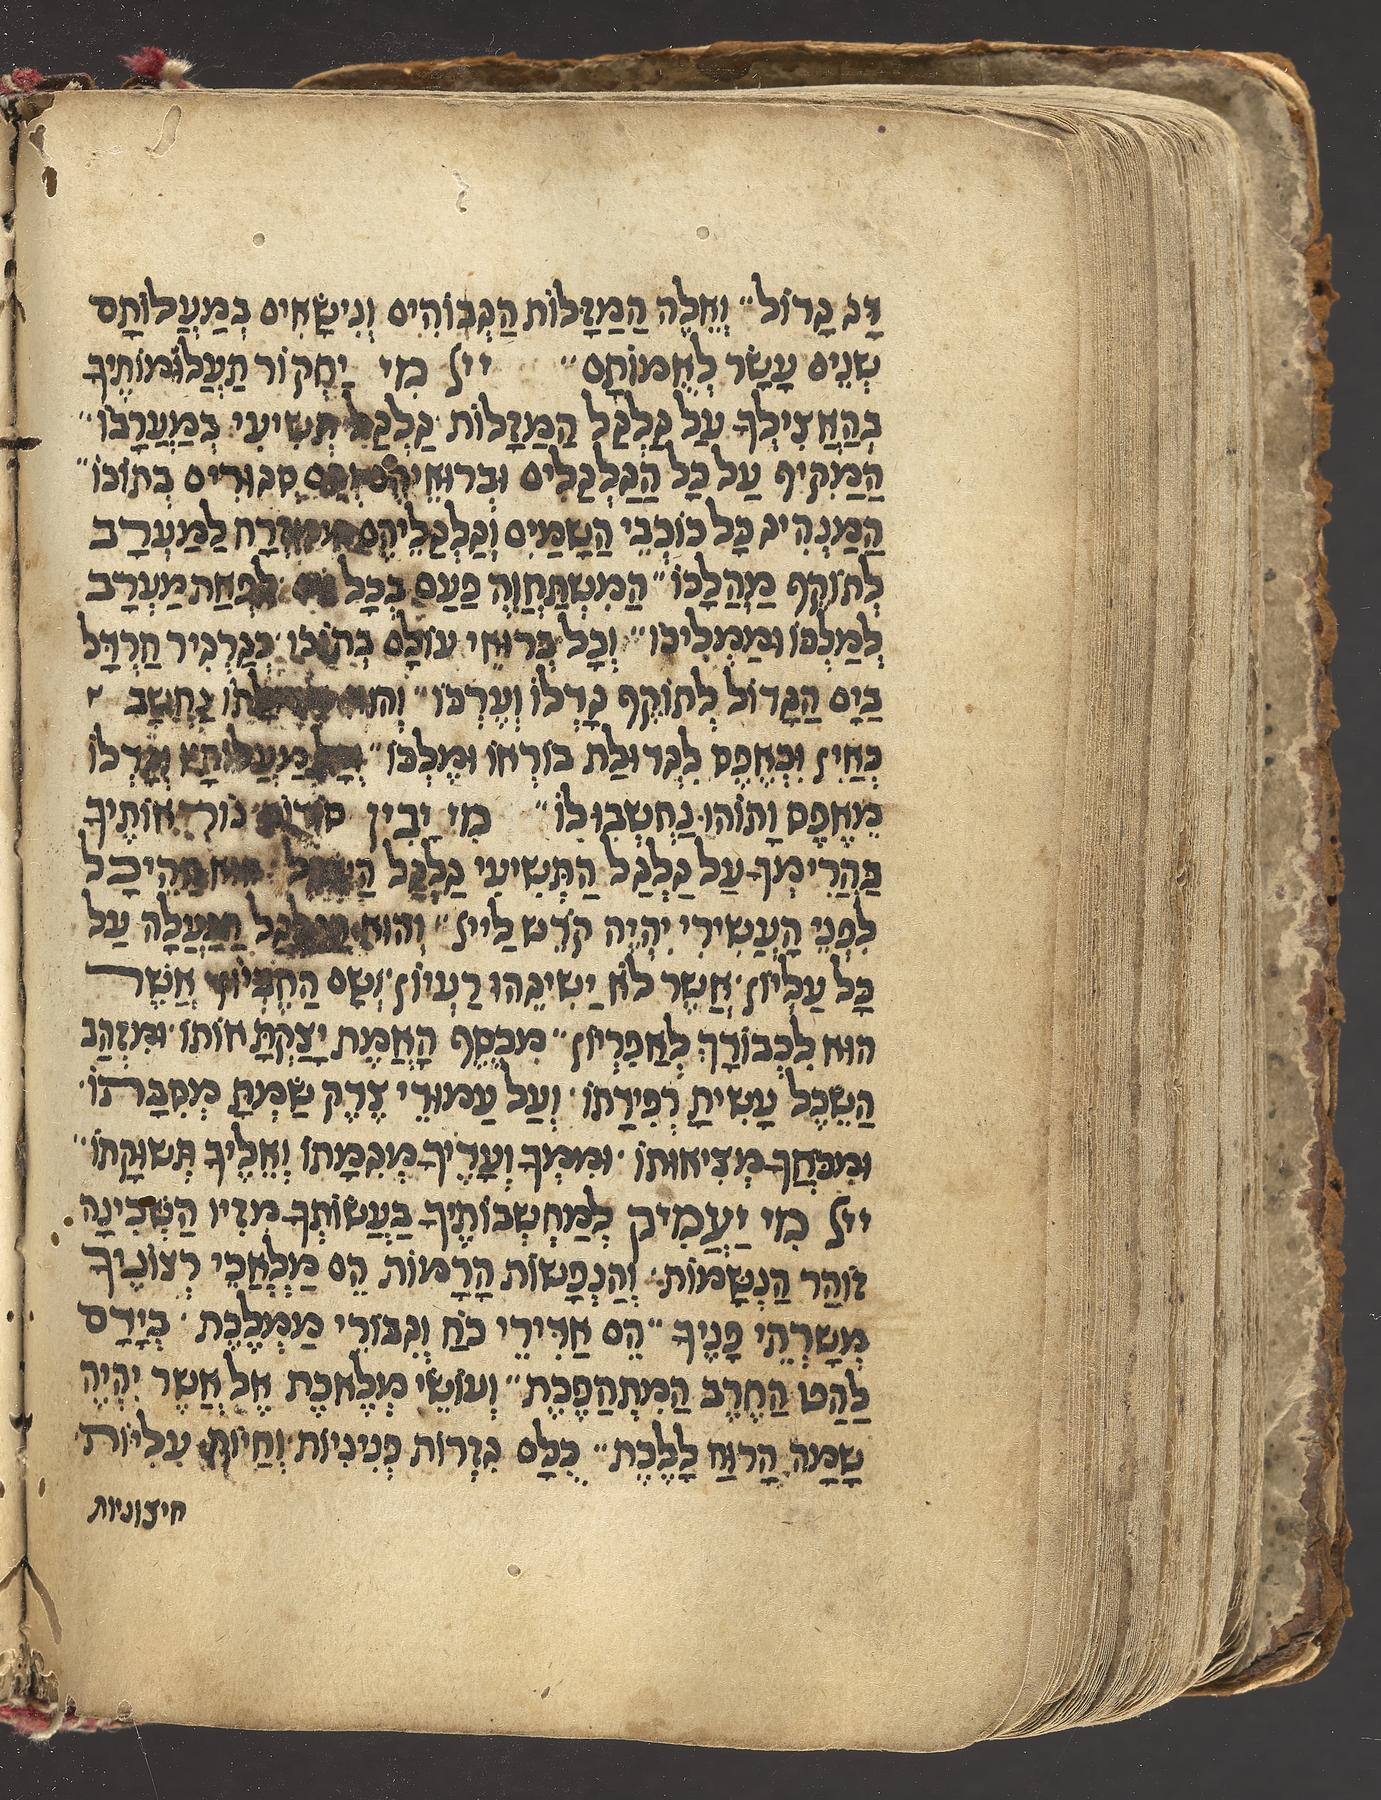 דָּג גָּדוֹל״ וְאֵלֶּה הַמַּזָּלוֹת הַגְּבוֹהִים וְנִישָּׂאִים בְּמַעֲלוֹתָם
שְׁנֵים עָשָׂר לְאֻמּוֹתָם״ ייל מִי יַחְקוֹר תַּעֲלוּמוֹתֶיךָ
בְּהַאֲצִילְךָ עַל גַּלְגַּל הַמַּזָּלוֹת גַּלְגַּל תְּשִׁיעִי בְּמַעֲרָבוֹ״
הַמַּקִּיף עַל כָּל הַגַּלְגַּלִּים וּבְרוּאֵיהֶם וְהֵם סְגוּרִים בְּתוֹכוֹ״
הַמַּנְהִיג כָּל כּוֹכְבֵי הַשָּׁמַיִם וְגַלְגַּלֵּיהֶם לַמַּעְרָב
לְתוֹקֶף מַהֲלָכוֹ״ הַמִּשְׁתַּחֲוֶה פַּעַם בְּכָל לִפְאַת מַעְרָב
לְמַלְכּוֹ וּמַמְלִיכוֹ״ וְכָל בְּרוּאֵי עוֹלָם בְּתוֹכוֹ כְּגַרְגִּיר חַרְדָּל
בַּיָּם הַגָּדוֹל לְתוֹקֶף גָּדְלוֹ וְעֶרְכּוֹ״ נֶחְשָׁב
כְּאַיִן וּכְאֶפֶס לִגְדוּלַּת בּוֹרְאוֹ וּמַלְכּוֹ״ וְגָדְלוֹ
מֵאֶפֶס וָתוֹהוּ נֶחְשְׁבוּ לוֹ״ מִי יָבִין סוֹדוֹת אוֹתֶיךָ
בַּהֲרִימְךָ עַל גַּלְגַּל הַתְּשִׁיעִי גַּלְגַּל הַשֵּׂכֶל הַהֵיכָל
לִפְנֵי הָעֲשִׂירִי יִהְיֶה קֹדֶשׁ לַייָ״ וְהוּא הַגַּלְגַּל הַנַּעֲלֶה עַל
כָּל עֶלְיוֹן אֲשֶׁר לֹא יַשִּׂיגֵהוּ רַעְיוֹן וְשָׁם הַחֶבְיוֹן אֲשֶׁר
הוּא לִכְבוֹדָךְ לְאַפִּרְיוֹן״ מִכֶּסֶף הָאֱמֶת יָצַקְתָּ אוֹתוֹ וּמִזְּהַב
הַשֵּׂכֶל עָשִׂיתָ רְפִידָתוֹ וְעַל עַמּוּדֵי צֶדֶק שַׂמְתָּ מְסִבָּתוֹ
וּמִכֹּחֲךָ מְצִיאוּתוֹ וּמִמְּךָ וְעָדֶיךָ מְגַמָּתוֹ וְאֵלֶיךָ תְּשׁוּקָתוֹ״
ייל מִי יַעֲמִיק לְמַחְשְׁבוֹתֶיךָ בַּעֲשׂוֹתְךָ מִזִּיו הַשְּׁכִינָה
זוֹהַר הַנְּשָׁמוֹת וְהַנְּפָשׁוֹת הָרָמוֹת הֵם מַלְאֲכֵי רְצוֹנֶךָ
מְשָׁרְתֵי פָנֶיךָ״ הֵם אַדִּירֵי כֹחַ וְגִבּוֹרֵי מַמְלֶכֶת בְּיָדָם
לַהַט הַחֶרֶב הַמִּתְהַפֶּכֶת״ וְעוֹשֵׂי מְלֶאכֶת אֶל אֲשֶׁר יִהְיֶה
שָׁמָּה הָרוּחַ לָלֶכֶת״ כֻּלָּם גְּזָרוֹת פְּנִינִיּוֹת וְחַיּוֹת עִלִּיּוֹת
חיצוניות